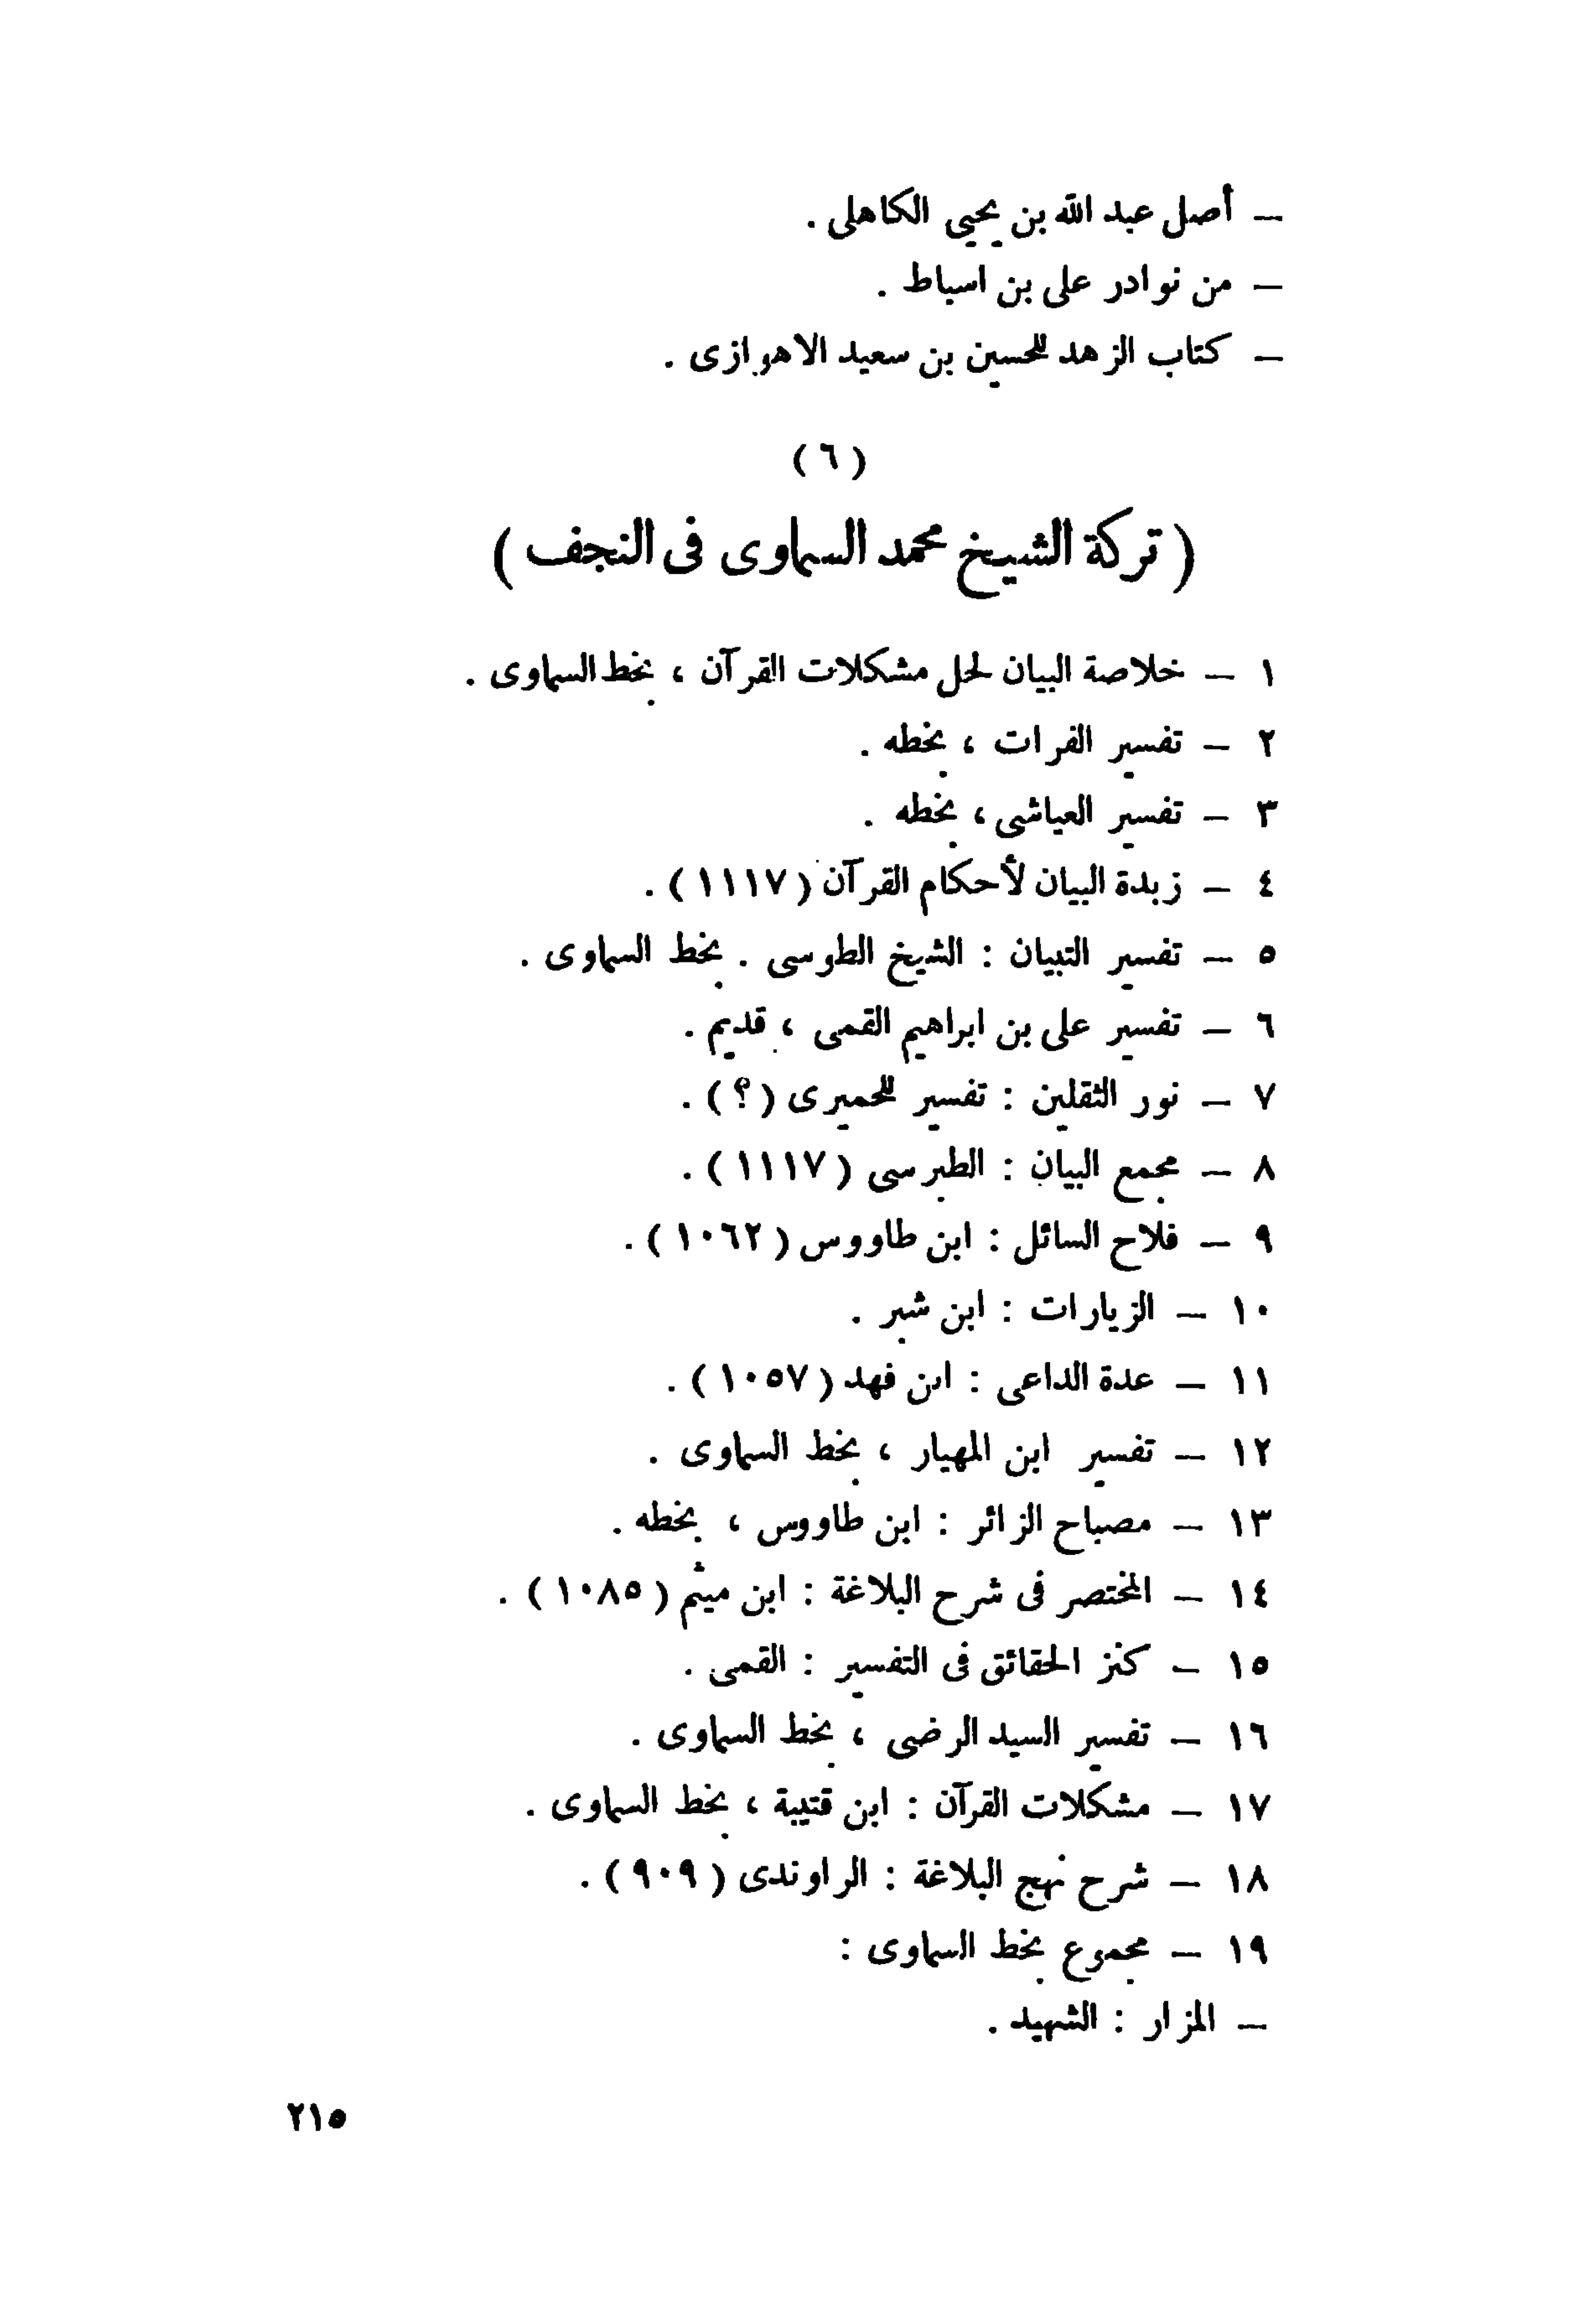 — أصل عبد الله بن يحيى الكاهلى .
— من نوادر على بن اسباط .
— كتاب الزهد للحسين بن سعيد الاهوازى .
( ٦ )
( تركة الشيخ محمد السماوى فى النجف )
١ — خلاصة البيان لحل مشكلات القرآن ، بخط السماوى .
٢ — تفسير الفرات ، بخطه .
٣ — تفسير العياشى ، بخطه .
٤ — زبدة البيان لأحكام القرآن ( ١١١٧ ) .
٥ — تفسير التبيان : الشيخ الطوسى . بخط السماوى .
٦ — تفسير على بن ابراهيم القمى ، قديم .
٧ — نور الثقلين : تفسير للحميرى ( ؟ ) .
٨ — مجمع البيان : الطبرسى ( ١١١٧ ) .
٩ — فلاح السائل : ابن طاووس ( ١٠٦٢ ) .
١٠ — الزيارات : ابن شبر .
١١ — عدة الداعى : ابن فهد ( ١٠٥٧ ) .
١٢ — تفسير ابن المهيار ، بخط السماوى .
١٣ — مصباح الزائر : ابن طاووس ، بخطه .
١٤ — المختصر فى شرح البلاغة : ابن ميثم ( ١٠٨٥ ) .
١٥ — كنز الحقائق فى التفسير : القمى .
١٦ — تفسير السيد الرضى ، بخط السماوى .
١٧ — مشكلات القرآن : ابن قتيبة ، بخط السماوى .
١٨ — شرح نهج البلاغة : الراوندى ( ٩٠٩ ) .
١٩ — مجموع بخط السماوى :
— المزار : الشهيد .
٢١٥